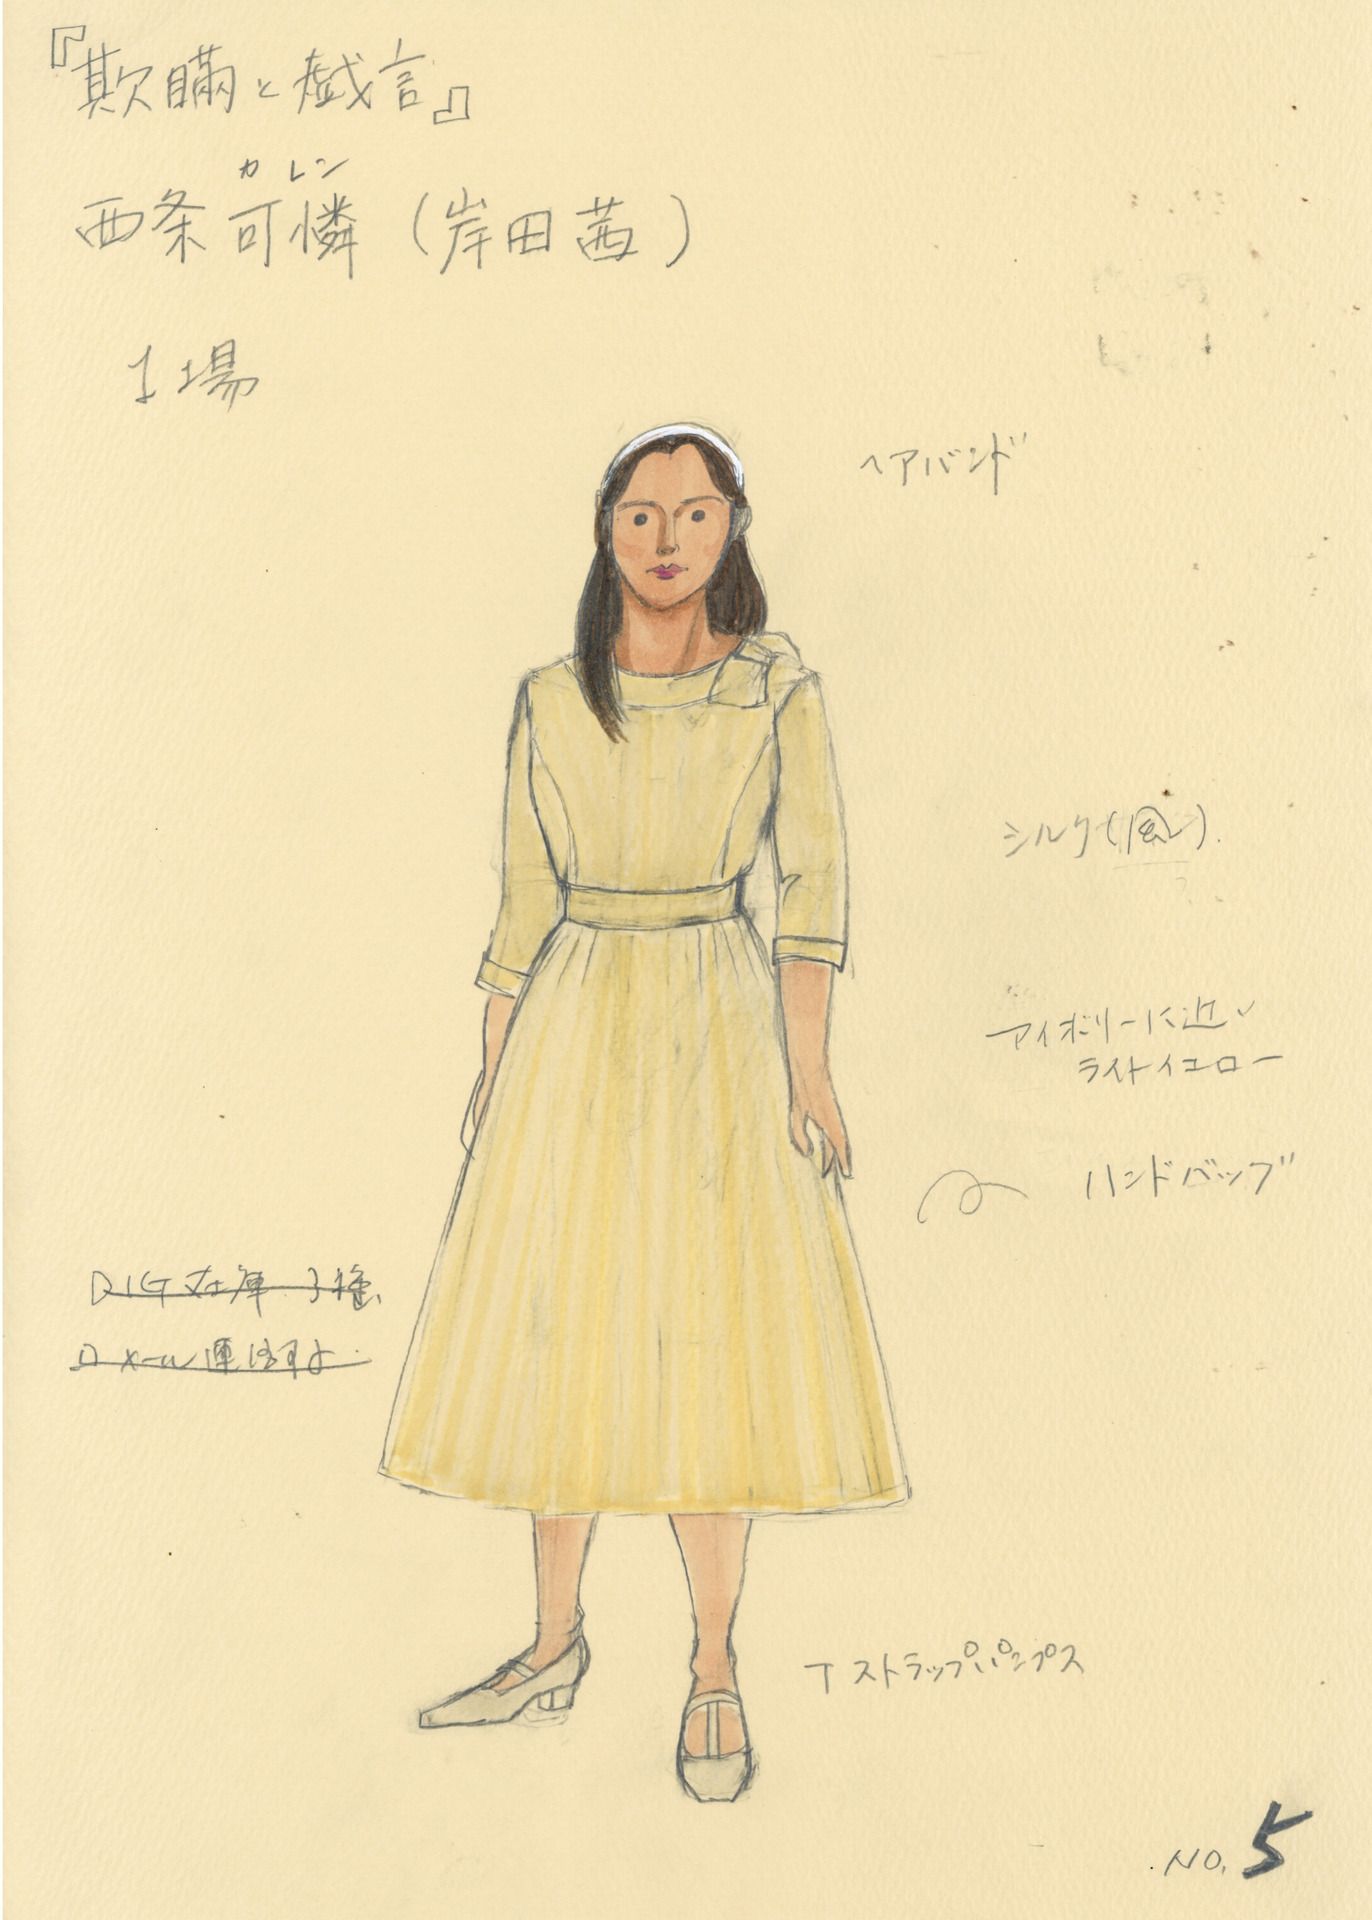 『欺瞞と戯言』
カレン
西条可憐（岸田茜）
1場
ヘアバンド
シルク(風).
アイボリーに近い
ライトイエロー
ハンドバッグ
DIG在庫 3種
Tストラップパンプス
NO. 5